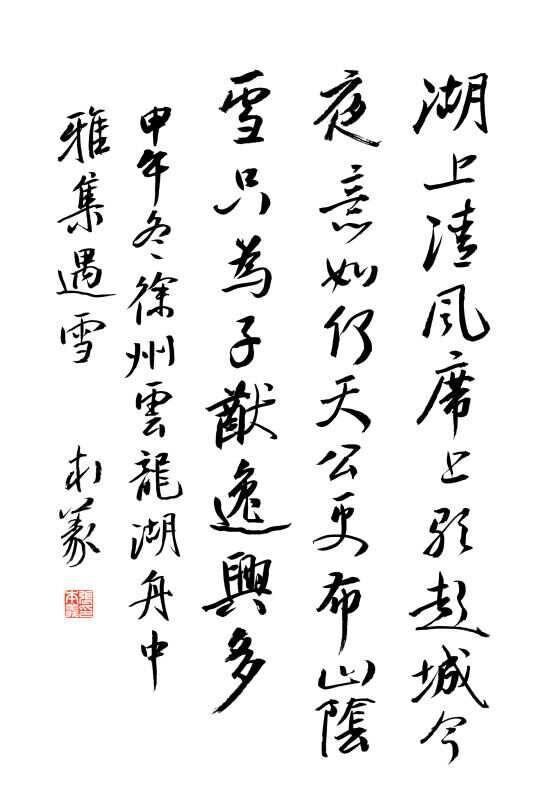 湖上清風席上歌彭城今
夜意如何天公更布山陰
雪只為子猷逸興多
甲午冬徐州雲龍湖舟中
雅集遇雪 本義